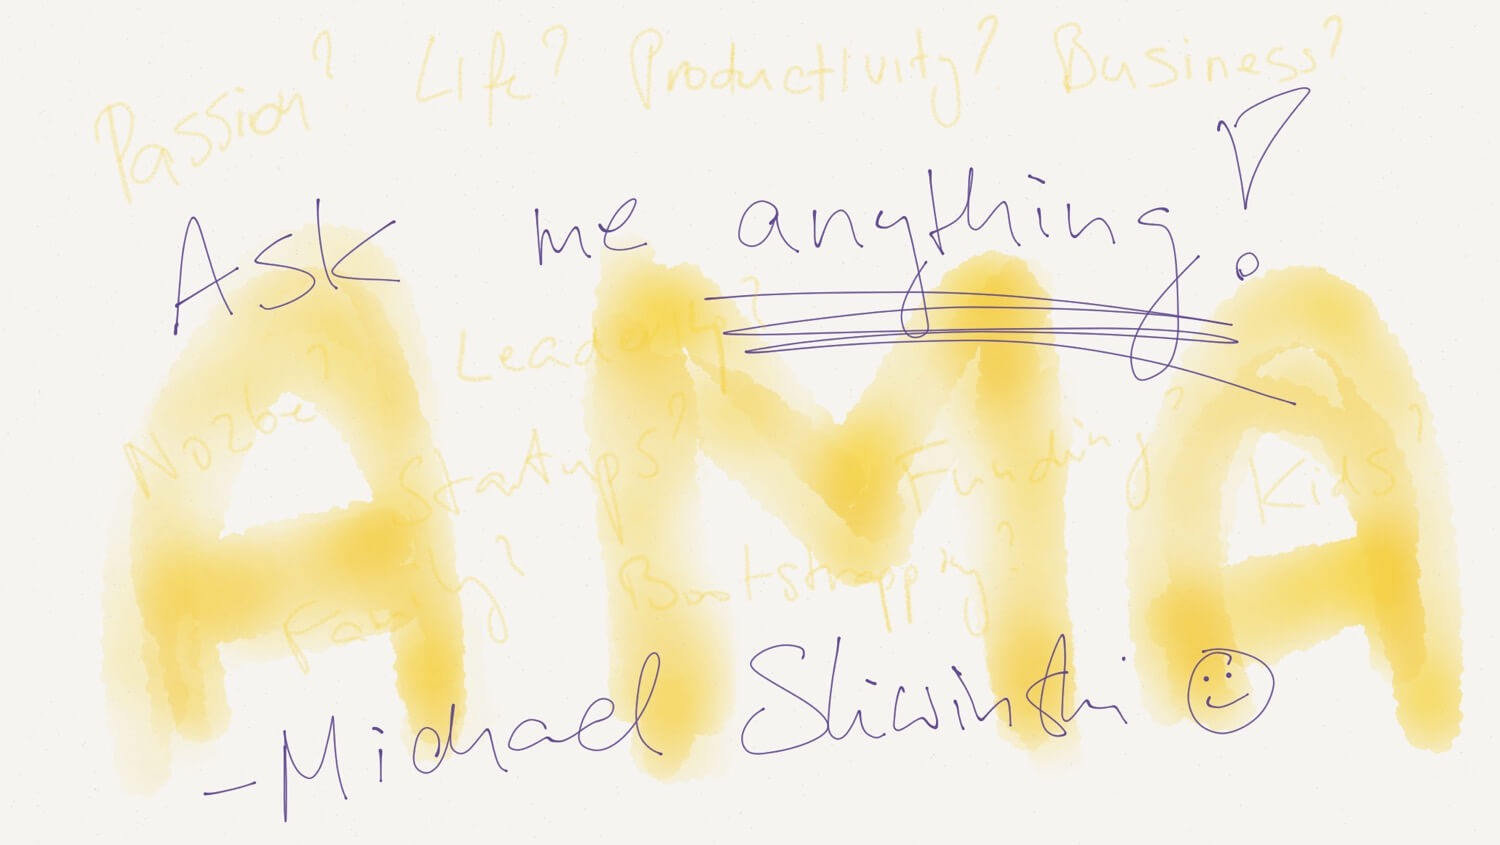 Passion? Life? Productivity? Business?
Ask me anything!
AMA
Leadership?
Nozbe?
Startups? Funding? Kids?
Family? Bootstrapping?
- Michael Sliwinski